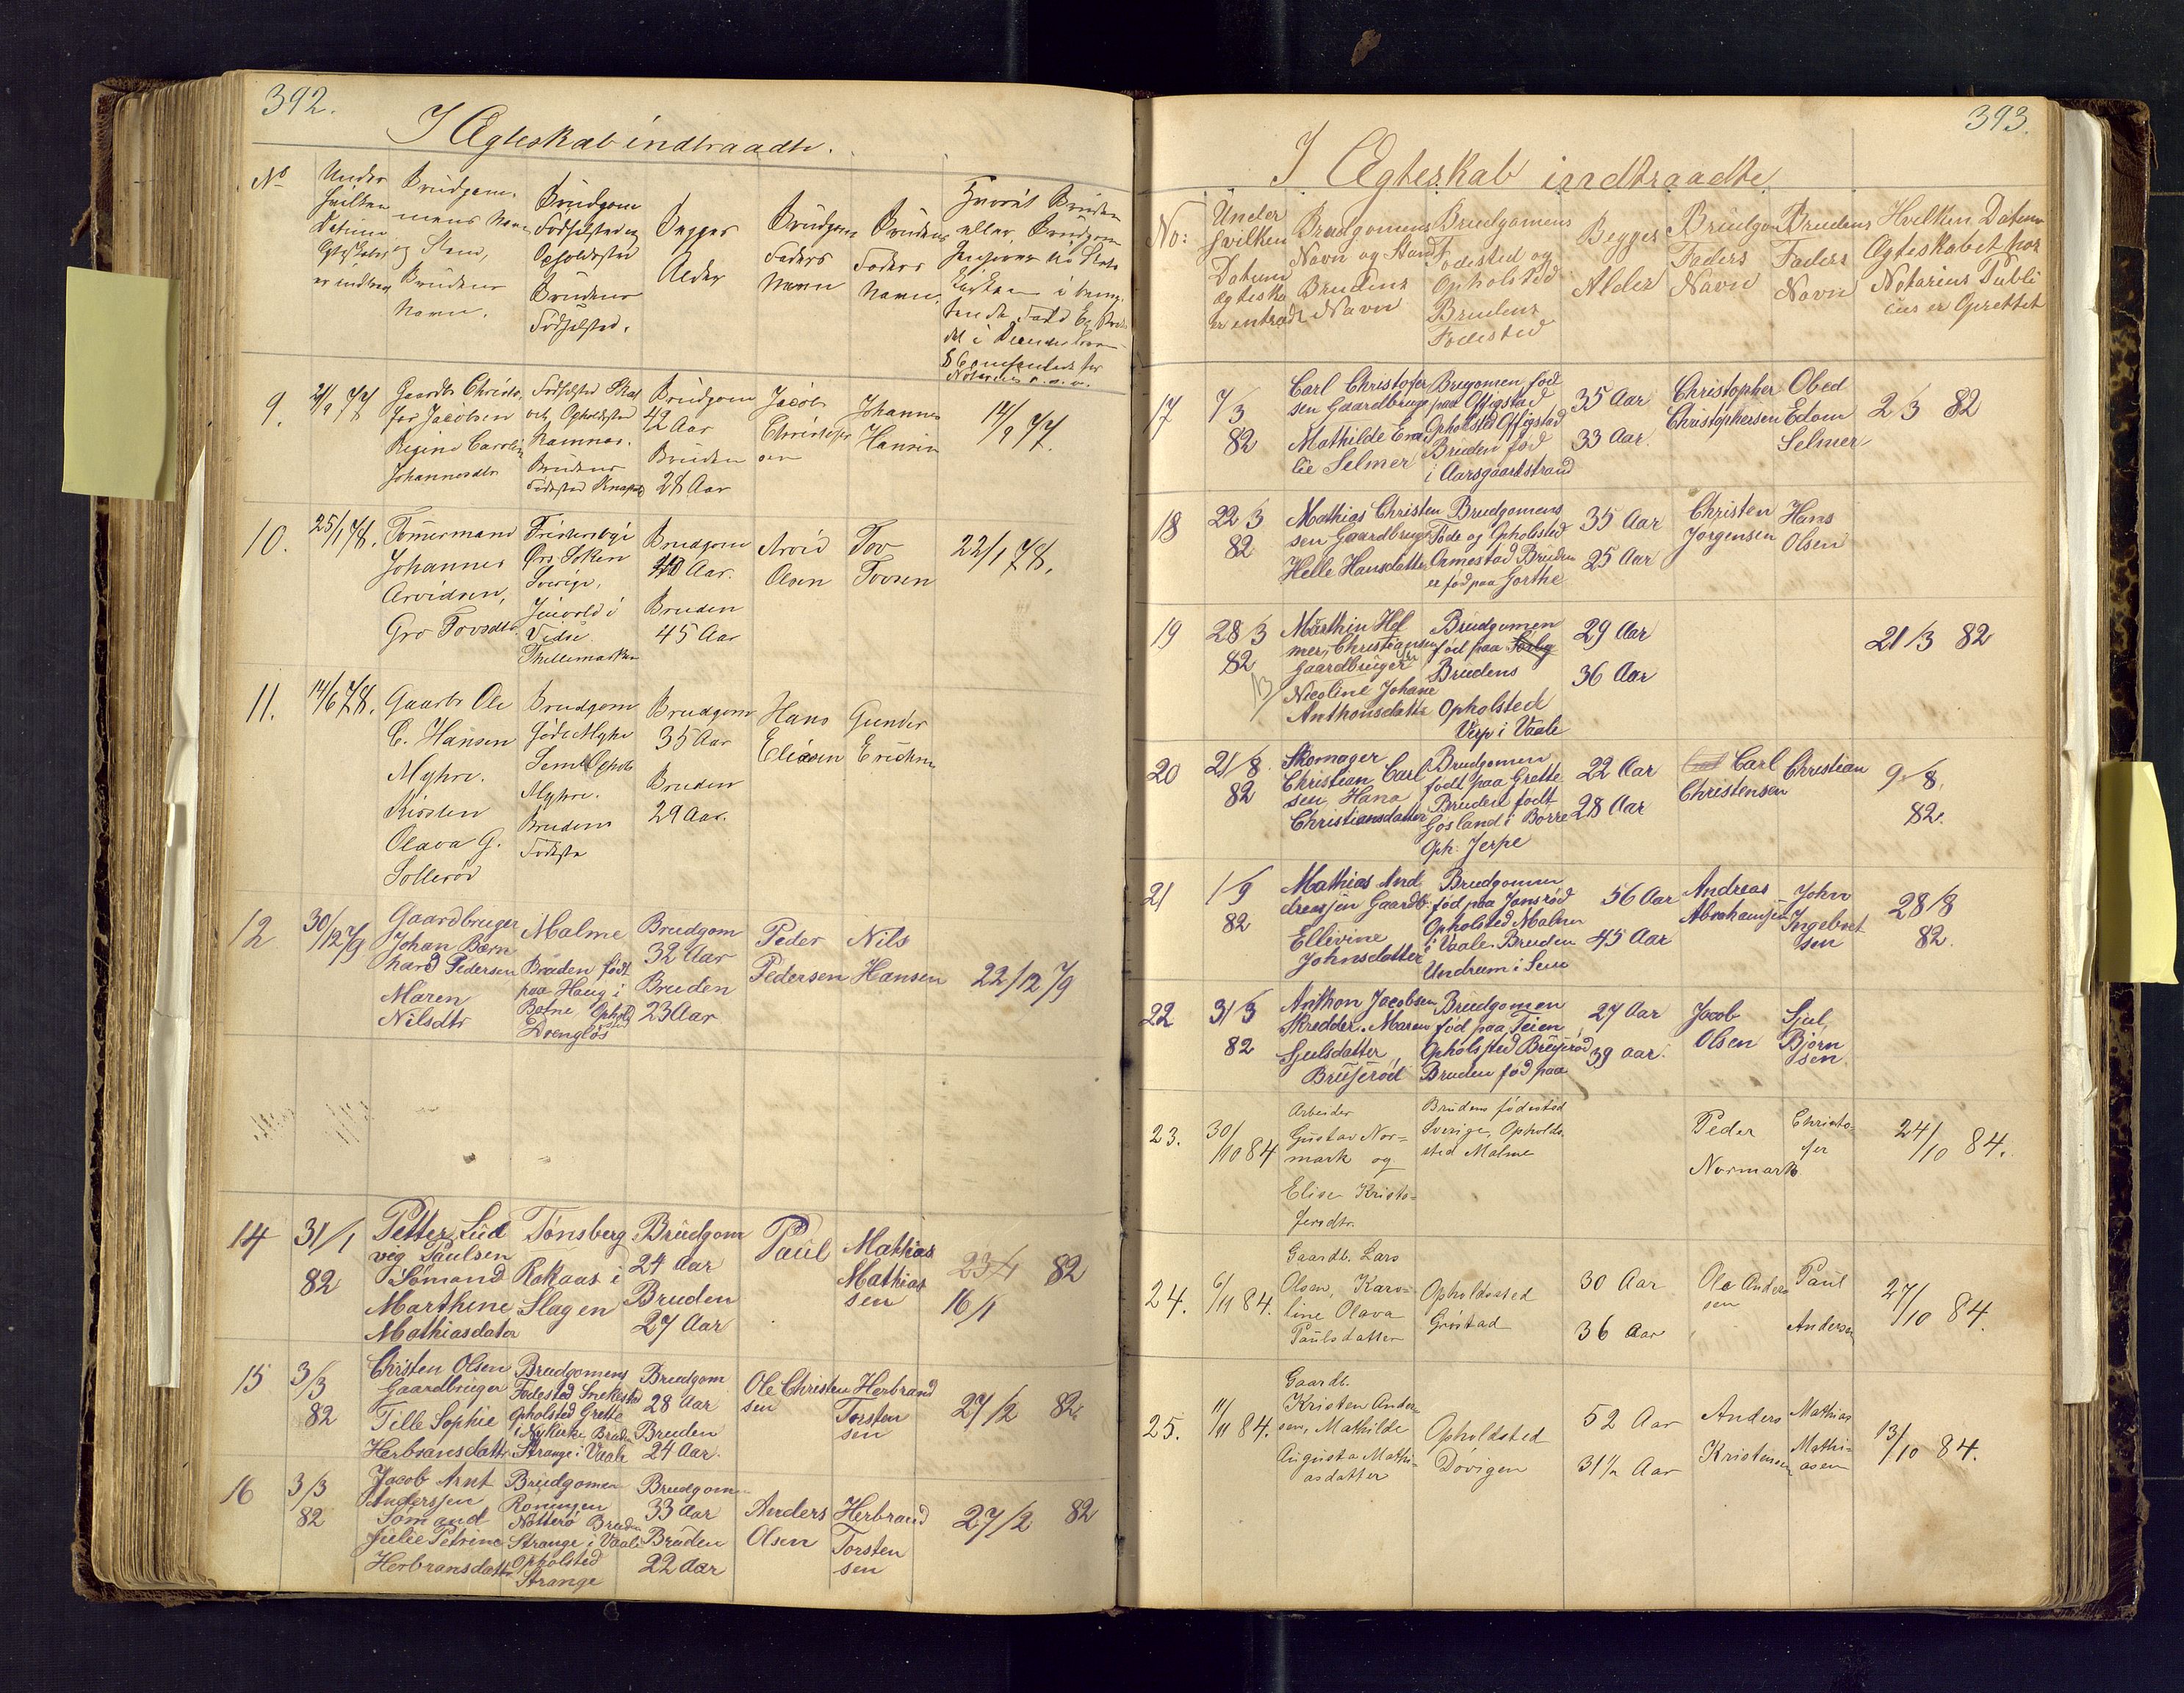 392.
I Ægteskab indtraadte.
No
Under hvilken Datum Egteskabet er indtraadt
Brudgommens Navn og Stand, Brudens Navn.
Brudgom Fødselsted og Opholdssted Brudens Fødselsted.
Begges Alder
Brudgoms Faders Navn
Brudens Faders Navn.
9.
21/9 77
Gaardb Christofer Jacobsen
Regine Caroline Johannesdtr
Opholdsted
Brudens Fødested Knapstad
Brudgom 42 Aar
Bruden 28 Aar
Jacob Christofersen
Johannes Hansen
14/9 77.
10.
25/1 78.
Tømermand Johannes Arvidsen,
Gro Tovsdtr
Sverige,
Thellemarken
Brudgom 40 Aar.
Bruden 45 Aar
Arvid Olsen
Tov Tovsen
22/1 78.
11.
14/6 78.
Gaardb Ole C. Hansen Myhre.
Kirsten Olava G. Sollerød
Brudgom
Myhre.
Brudens Fødeste
Brudgom 35 Aar
Bruden 29 Aar.
Hans Eliasen
Gunder Erichsen
12
30/12 79
Gaardbruger Johan Bærnhard Pedersen
Maren Nilsdtr
Malme
Bruden født paa Haug i Botne, Ophold Drengløs
Brudgom 32 Aar
Bruden 23 Aar
Peder Pedersen
Nils Hansen
22/12 79
14
31/1 82
Petter Ludvig Paulsen Sømand
Marthine Mathiasdater
Tønsberg
Rakaas i Slagen
Brudgom 24 Aar
Bruden 27 Aar
Paul
Mathias Mathiassen
23/1 82
16/1
15
3/3 82
Christen Olsen Gaardbruger
Tille Sophie Herbransdattr
Brudgomens Fødested Snekestad Opholsted Grette i Nykirke Bruden Strange i Vaale
Brudgom 28 Aar
Bruden 24 Aar.
Ole Christensen
Herbrand Torstensen
27/2 82.
16
3/3 82
Jacob Arnt Anderssen Sømand
Julie Petrine Herbransdattr
Brudgomen Roningen Nøtterø Bruden Strange i Vaale Opholsted Strange
Brudgom 33 Aar
Bruden 22 Aar
Anders Olsen
Herbrand Torstensen
27/2 82
393.
I Ægteskab indtraadte
No:
Under hvilken Datum Ægteska er entradt
Brudgomens Navn og Stand Brudens Navn
Brudgomens Fodested og Opholsted Brudens Fodested
Begges Alder
Brudgo Faders Navn
Brudens Faders Navn
Hvilken Datum Ægteskabet for Notarius Publicus er Oprettet
17
7/3 82
Carl Christofersen Gaardbruge
Mathilde Emelie Selmer
Brugomen fød paa Offigstad Opholsted Offigstad
Bruden fød i Aarsgaartstrand
35 Aar
33 Aar.
Christopher Christophersen
Obed Edom Selmer
2 3 82
18
22 3 82
Mathias Christensen Gaardbruger
Helle Hansdatter
Brudgomens Føde og Opholsted Ormestad Bruden er fød paa Gorthe
35 Aar
25 Aar
Christen Jørgensen
Hans Olsen
19
28/3 82
Marthin Helmer, Christiansen Gaardbruger
Nicoline Johane Anthonsdatter
Brudgomen fød paa
Brudens Opholsted Verp i Vaale
29 Aar
36 Aar
21/3 82
20
21/8 82
Skomager Christian Carlsen, Hana Christiansdatter
Brudgomen født paa Grette
Bruden født Gosland i Borre Oph: Jerpe
22 Aar
28 Aar
Carl Christensen
Christian
9/8 82.
21
1/9 82
Mathias Andreasjen Gaardb.
Ellevine Johnsdatter
Brudgommen fød paa Jonsrød Opholsted Malmen i Vaale. Bruden Undrum i Sem
56 Aar
45 Aar
Andreas Abrahamsen
John Ingebretsen
28/8 82.
22
31/3 82
Anthon Jacobsen Skredder. Maren Sjulsdatter, Brüserød
Brudgomen fød paa Teien, Opholssted Brüserød Bruden fød paa
27 Aar
39 aar.
Jacob Olsen
Sjul Bjørnsen
23.
30/10 84
Arbeider Gustav Normark og
Elise Kristofersdtr.
Brudens fødested Sverige, Opholdssted Malme
Peder Normark
Christofer
24/10 84.
24.
6/11 84.
Gaardb. Lars Olsen, Karoline Olava Paulsdatter
Opholdssted Grøstad
30 Aar
36 Aar
Ole Andersen
Paul Andersen
27/10 84.
25.
11/11 84.
Gaardb. Kristen Andersen, Mathilde Augusta Mathiasdatter
Opholdsted Dørigen
52 Aar
31½ Aar
Anders Kristensen
Mathias Mathiasen
13/10 84.